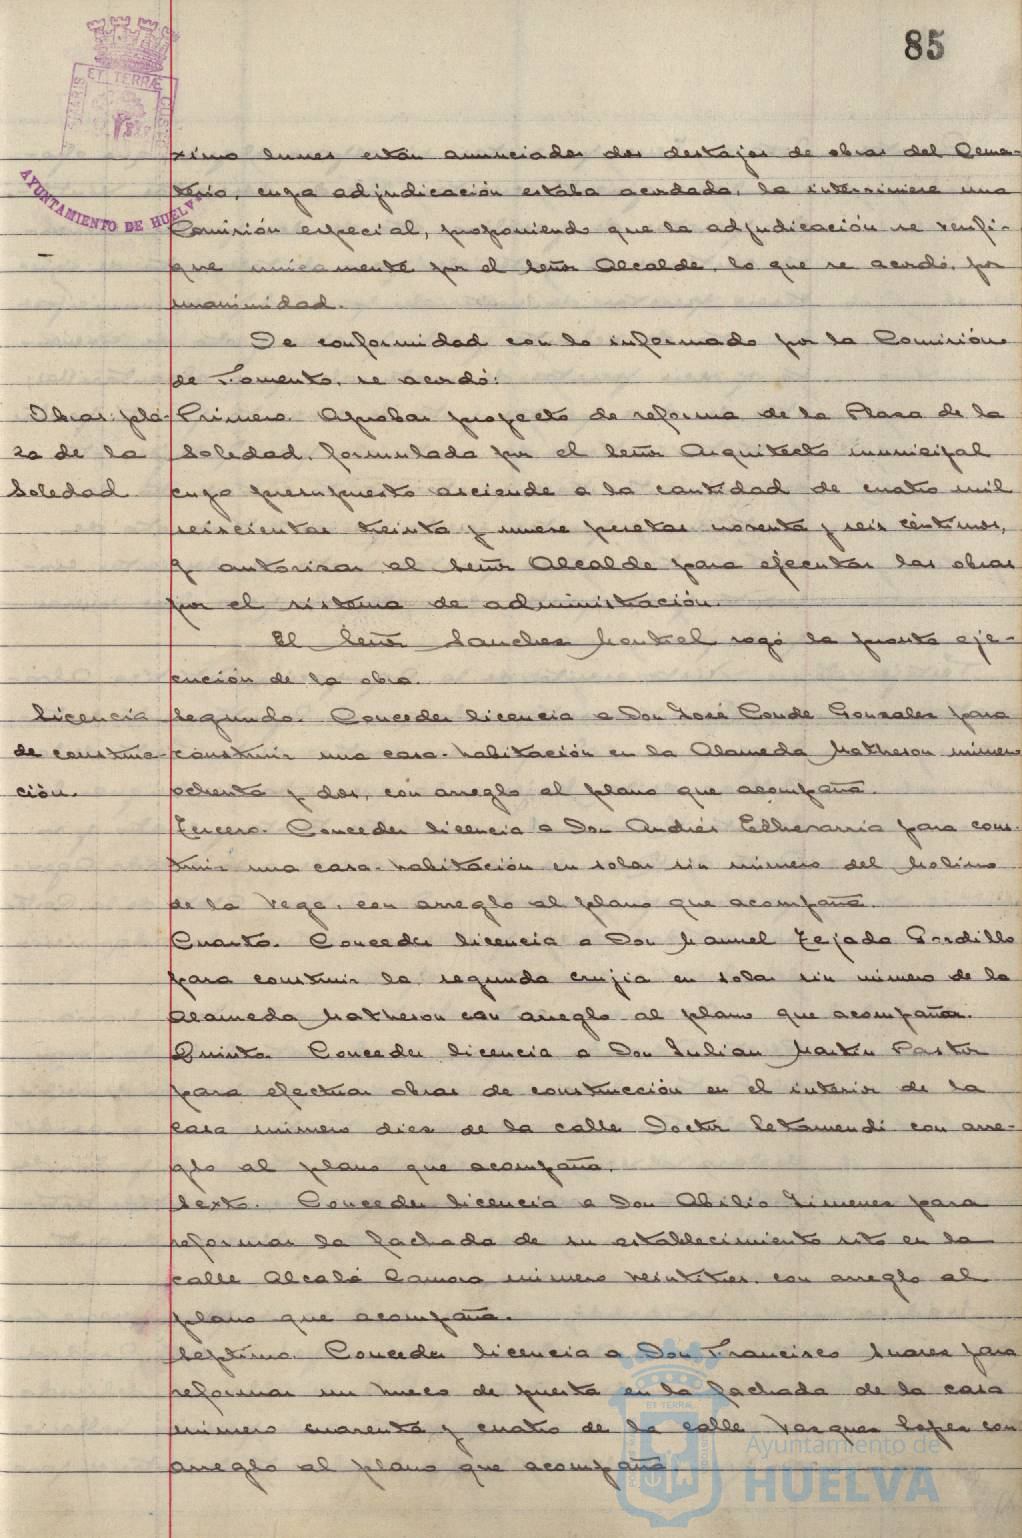 85
ET TERRÆ
AYUNTAMIENTO DE HUELVA
ximo lunes están anunciados dos destajos de obras del Cemen-
terio, cuya adjudicación estaba acordada, la interviniese una
Comisión especial, proponiendo que la adjudicación se verifi-
que unicamente por el Señor Alcalde, lo que se acordó, por
unanimidad.
De conformidad con lo informado por la Comisión
de Fomento, se acordó:
Obras pla-
za de la
Soledad
Primero. Aprobar proyecto de reforma de la Plaza de la
Soledad, formulada por el Señor Arquitecto municipal
cuyo presupuesto asciende a la cantidad de cuatro mil
seiscientas treinta y nueve pesetas noventa y seis céntimos,
y autorizar al Señor Alcalde para ejecutar las obras
por el sistema de administración.
El Señor Sanchez Montiel rogó la pronta eje-
cución de la obra.
Licencia
de construc-
ción.
Segundo. Conceder licencia a Don José Conde Gonzalez para
construir una casa-habitación en la Alameda Matheson número
ochenta y dos, con arreglo al plano que acompaña.
Tercero. Conceder licencia a Don Andrés Echevarria para cons-
truir una casa-habitación en solar sin número del Molino
de la Vega, con arreglo al plano que acompaña.
Cuarto. Conceder licencia a Don Manuel Tejada Gordillo
para construir la segunda crujia en solar sin número de la
Alameda Matheson con arreglo al plano que acompaña.
Quinto. Conceder licencia a Don Julian Martin Pastor
para efectuar obras de construcción en el interior de la
casa número diez de la calle Doctor Letamendi con arre-
glo al plano que acompaña.
Sexto. Conceder licencia a Don Abilio Jimenez para
reformar la fachada de su establecimiento sito en la
calle Alcalá Zamora número veintitres, con arreglo al
plano que acompaña.
Septimo. Conceder licencia a Don Francisco Suarez para
reformar un hueco de puerta en la fachada de la casa
número cuarenta y cuatro de la calle Vazquez Lopez con
arreglo al plano que acompaña
Ayuntamiento de
HUELVA